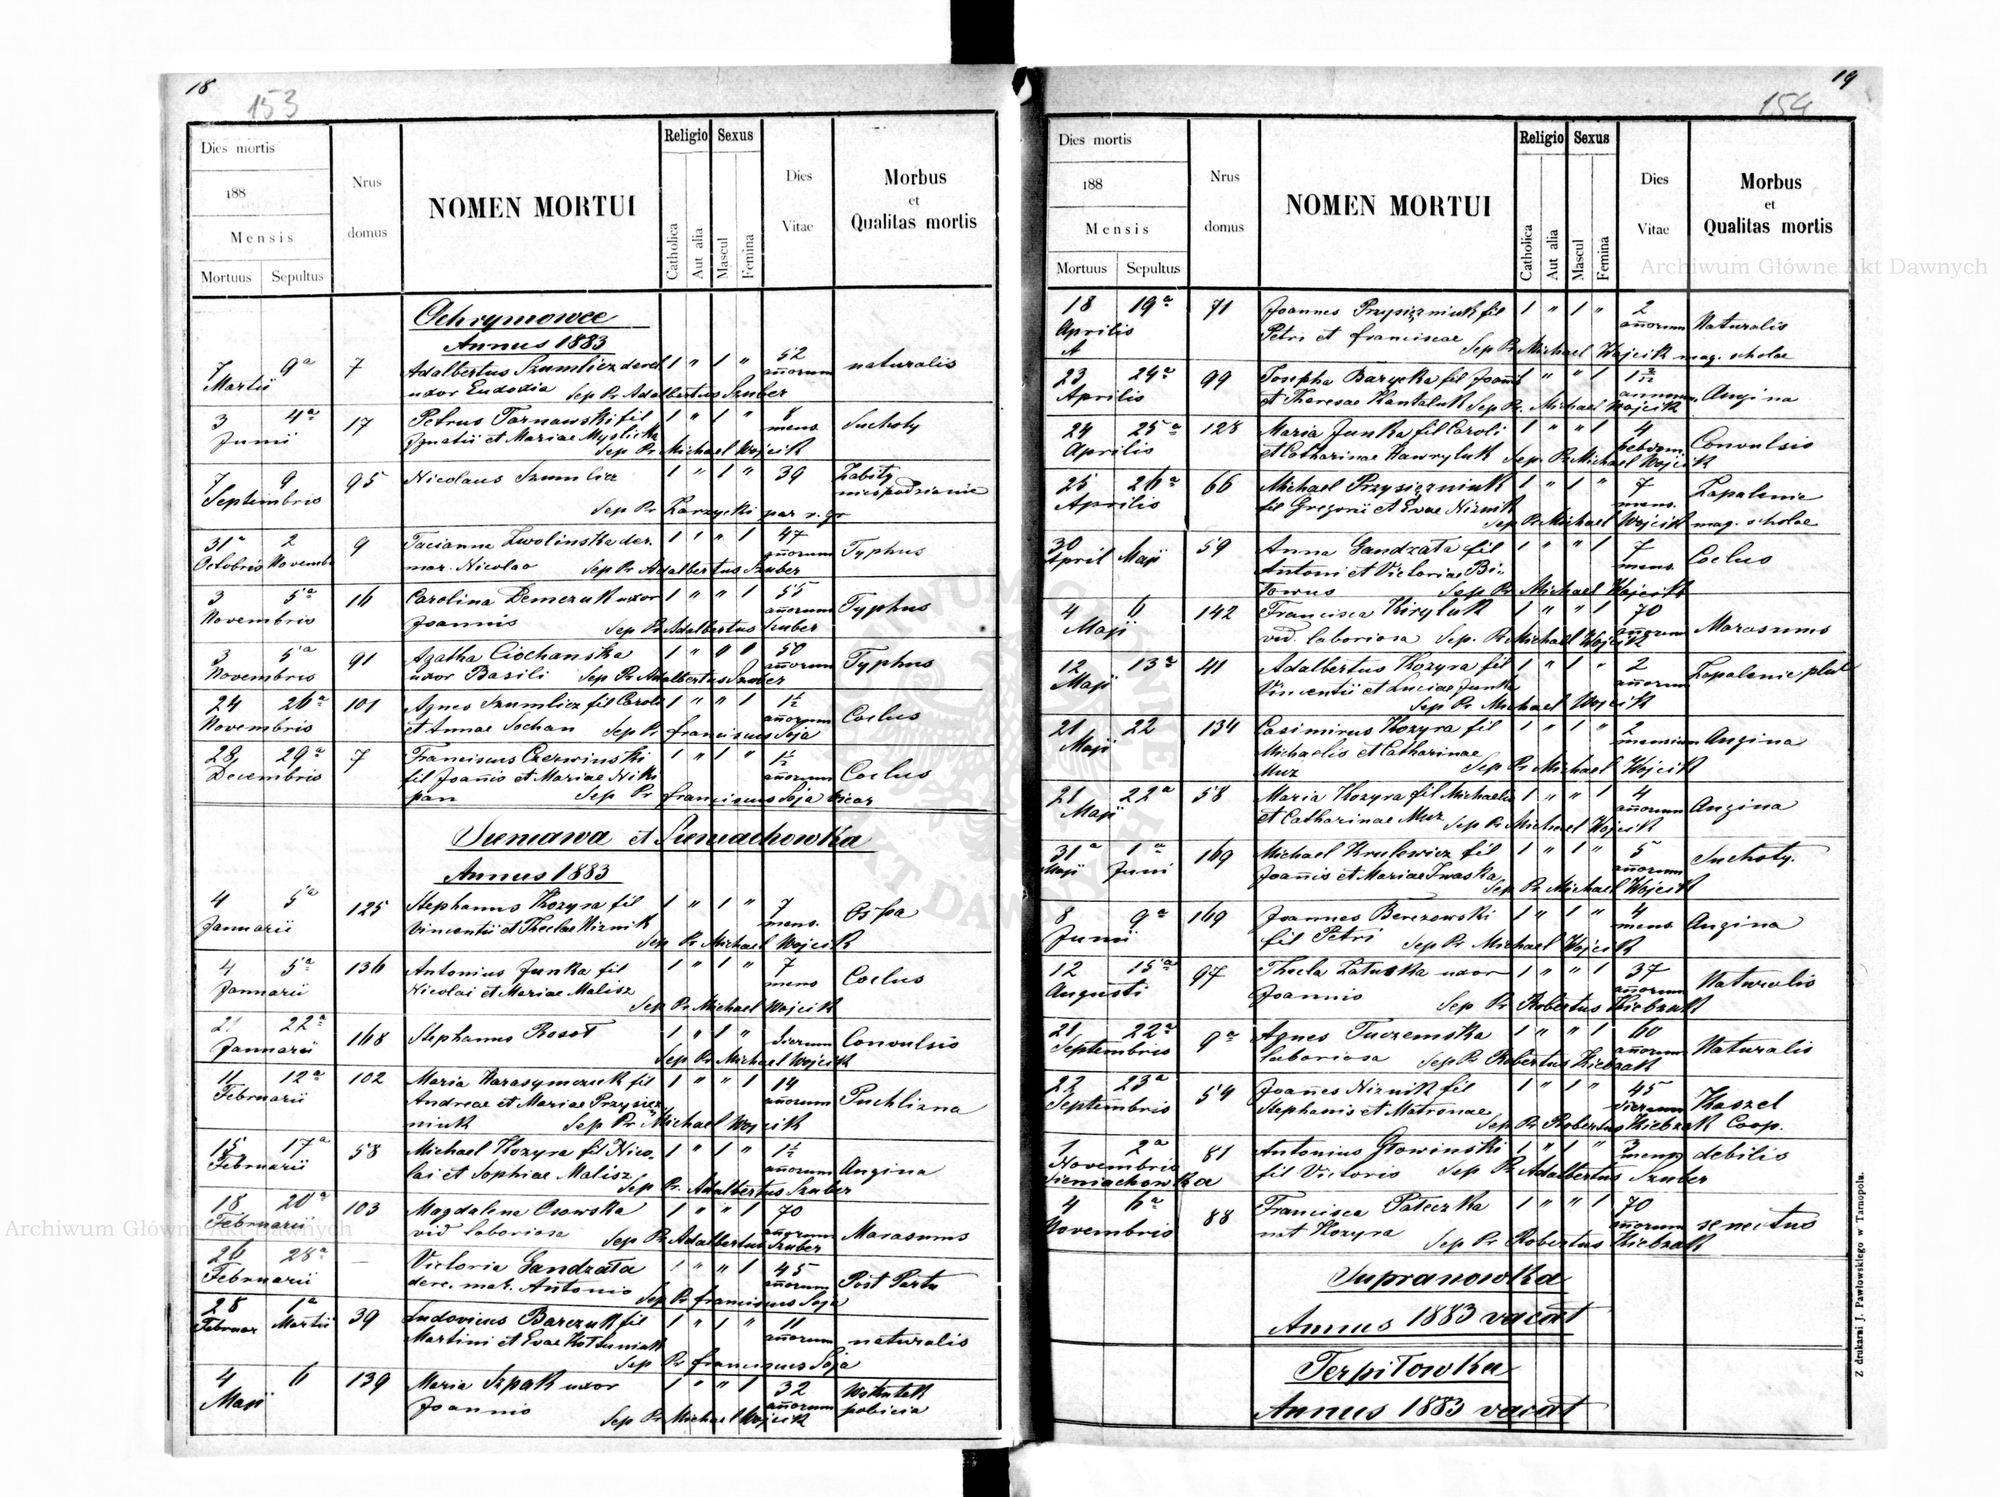 18
153
Dies mortis
188
Mensis
Mortuus Sepultus
Nrus
domus
NOMEN MORTUI
Religio
Catholica
Aut alia
Sexus
Mascul
Femina
Dies
Vitae
Morbus
et
Qualitas mortis
Ochrymowce
Annus 1883
7 9ª 7 Adalbertus Szumlicz derel 1 " 1 " 52 naturalis
Martii uxor Eudoxia Sep Pr Adalbertus Szuber añorum
3 4ª 17 Petrus Tarnawski fil 1 " 1 " 8 Suchoty
Junii Ignatii et Mariae Myslicka mens.
Sep Pr Michael Wojcik
7 9 95 Nicolaus Szumlicz 1 " 1 " 39 Zabity
Septembris niespodzianie
Sep Pr Zarzycki par r. gr
31ª 2 9 Tacianna Zwolinska der. 1 " " 1 47 Typhus
Octobris Novemb mar. Nicolao Sep Pr Adalbertus Szuber añorum
3 5ª 16 Carolina Demczuk uxor 1 " " 1 55 Typhus
Novembris Joannis Sep Pr Adalbertus Szuber añorum
3 5ª 91 Agatha Ciochanska 1 " " 1 50 Typhus
Novembris uxor Basili Sep Pr Adalbertus Szuber añorum
24 26ª 101 Agnes Szumlicz fil Caroli 1 " " 1 1½ Coelus
Novembris et Annae Sochan Sep Pr franciscus Soja añorum
28 29ª 7 Franciscus Czerwinski 1 " 1 " 1½ Coelus
Decembris fil Joañis et Mariae Niki añorum
pan Sep Pr franciscus Soja vicar
Sieniawa et Sieniachowka
Annus 1883
4 5ª 125 Stephanus Kozyra fil 1 " 1 " 7 Ospa
Januarii Vincentii et Theclae Niznik mens.
Sep Pr Michael Wojcik
4 5ª 136 Antonius Junka fil 1 " 1 " 7 Coelus
Januarii Nicolai et Mariae Malisz mens
Sep Pr Michael Wojcik
21 22ª 168 Stephanus Bosot 1 " 1 " dierum Convulsio
Januarii Sep Pr Michael Wojcik
11 12ª 102 Maria Harasymczuk fil 1 " " 1 14 Puchlizna
Februarii Andreae et Mariae Przysiez añorum
niuk Sep Pr Michael Wojcik
15 17ª 58 Michael Kozyra fil Nico- 1 " 1 " 1½ Angina
Februarii lai et Sophiae Malisz añorum
Sep Pr. Adalbertus Szuber
18 20ª 103 Magdalena Osowska 1 " " 1 70 Marasmus
Februarii vid laboriosa Sep Pr Adalbertus Szuber añorum
26 28ª — Victoria Gandzata 1 " " 1 45 Post Partu
Februarii dere. mar. Antonio añorum
Sep Pr franciscus Soja
28 1ª 39 Ludovicus Barczuk fil 1 " 1 " 11 naturalis
Februar Martii Martini et Evae añorum
Sep Pr franciscus Soja
4 6 139 Maria Szpak uxor 1 " " 1 32 Wskutek
Maji Joannis añorum pobicia
Sep Pr Michael Wojcik
19
154
Dies mortis
188
Mensis
Mortuus Sepultus
Nrus
domus
NOMEN MORTUI
Religio
Catholica
Aut alia
Sexus
Mascul
Femina
Dies
Vitae
Morbus
et
Qualitas mortis
18 19ª 71 Joannes Przysiezniuk fil 1 " 1 " 2 Naturalis
Aprilis Petri et franciscae añorum
Sep Pr Michael Wojcik mag. scholae
23 24ª 99 Josepha Barycka fil Joañis 1 " " 1 Angina
Aprilis et Theresae Kantaluk Sep Pr. Michael Wojcik annum
24 25ª 128 Maria Junka fil Caroli 1 " " 1 4 Convulsio
Aprilis et Catharinae Hawryluk Sep. Pr Michael Wojcik hebdom.
25 26ª 66 Michael Przysiezniuk 1 " 1 " 7 Zapalenie
Aprilis fil Gregorii et Evae Niznik mens.
Sep Pr Michael Wojcik mag. scholae
30 59 Anna Gandzata fil 1 " " 1 7 Coelus
April Maji Antoni et Victoriae Bi- mens.
towus Sep Pr Michael Wojcik
4 6 142 Francisca Kiryluk 1 " " 1 70 Marasmus
Maji vid. laboriosa Sep. Pr Michael Wojcik añorum
12 13ª 41 Adalbertus Kozyra fil 1 " 1 " 2 Zapalenie pluc
Maji Vincentii et Luciae Junka añorum
Sep Pr Michael Wojcik
21 22 134 Casimirus Kozyra fil 1 " 1 " 2 Angina
Maji Michaelis et Catharinae mensium
Muz Sep Pr Michael Wojcik
21 22ª 58 Maria Kozyra fil Michaelis 1 " " 1 4 Angina
Maji et Catharinae Muz Sep Pr Michael Wojcik añorum
31ª 1ª 169 Michael Krulewicz fil 1 " 1 " 5 Suchoty.
Maji Juni Joañis et Mariae Iwaska añorum
Sep Pr Michael Wojcik
8 9ª 169 Joannes Berezowski 1 " 1 " 4 Angina
Junii fil Petri Sep Pr Michael Wojcik mens.
12 13ª 97 Thecla Zatuska uxor 1 " " 1 37 Naturalis
Augusti Joannis añorum
Sep Pr Robertus Kiebzak
21 22ª 9ª Agnes Tuczemska 1 " " 1 60 Naturalis
Septembris laboriosa Sep Pr Robertus Kiebzak añorum
22 23ª 54 Joañes Niznik fil 1 " 1 " 45 Kaszel
Septembris Stephanis et Matronae dierum
Sep Pr Robertus Kiebzak Coop.
1 2ª 81 Antonius Growinski 1 " 1 " 3 debilis
Novembris fil Victoris Sep Pr Adalbertus Szuber mens
Sieniachowka
4 6ª 88 Francisca Pateczka 1 " " 1 70 senectus
Novembris nat Kozyra añorum
Sep Pr Robertus Kiebzak
Supranowka
Annus 1883 vacat
Terpiłowka
Annus 1883 vacat
Z drukarni J. Pawłowskiego w Tarnopolu.
Archiwum Główne Akt Dawnych
Archiwum Główne Akt Dawnych
ARCHIWUM GŁÓWNE AKT DAWNYCH